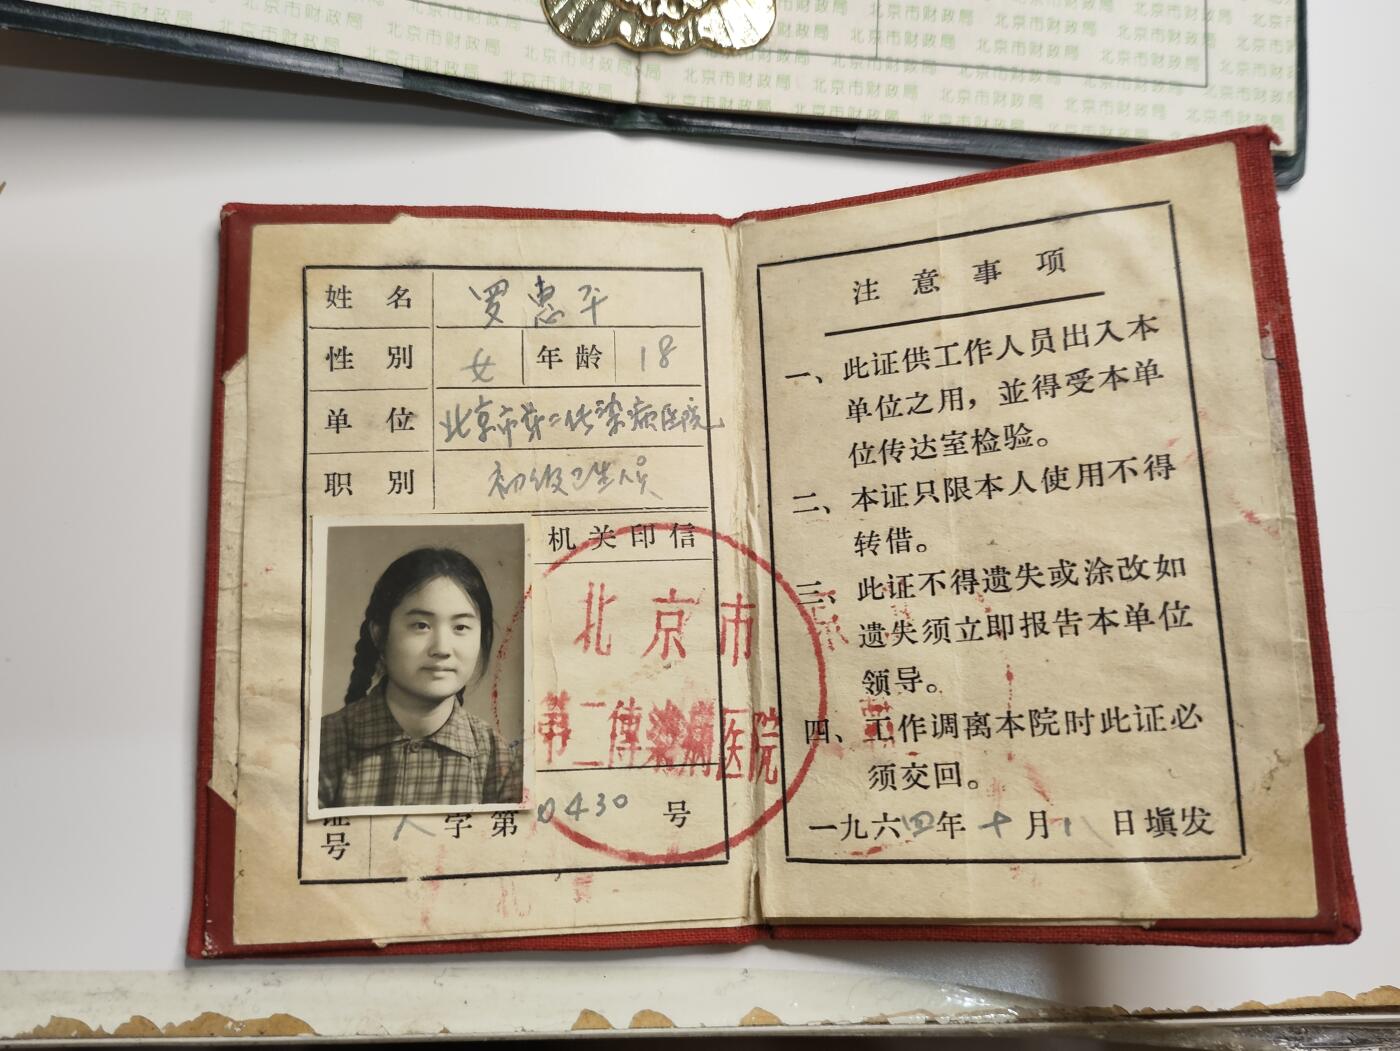 北京市财政局
姓名 罗惠平
性别 女 年龄 18
单位 北京市第二传染病医院
职别 初级卫生人员
机关印信
北京市
第二傳染病医院
证号 人字第0430号
注意事项
一、此证供工作人员出入本
单位之用，並得受本单
位传达室检验。
二、本证只限本人使用不得
转借。
三、此证不得遗失或涂改如
遗失须立即报告本单位
领导。
四、工作调离本院时此证必
须交回。
一九六四年十月 日填发